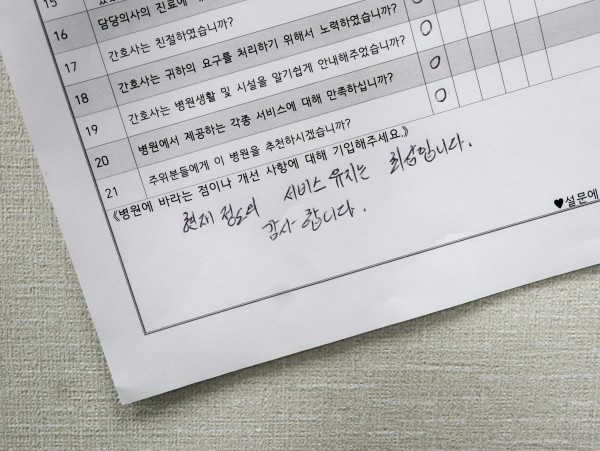 15
16 담당의사의 진료에
17 간호사는 친절하였습니까?
18 간호사는 귀하의 요구를 처리하기 위해서 노력하였습니까? O
19 간호사는 병원생활 및 시설을 알기쉽게 안내해주었습니까? O
20 병원에서 제공하는 각종 서비스에 대해 만족하십니까? O
21 주위분들에게 이 병원을 추천하시겠습니까? O
《병원에 바라는 점이나 개선 사항에 대해 기입해주세요.》
현재 정도의 서비스 유지는 최상입니다.
감사 합니다.
♥설문에